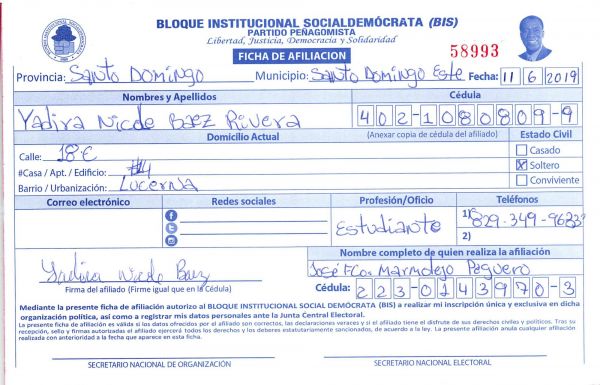 BLOQUE INSTITUCIONAL SOCIALDEMÓCRATA (BIS)
PARTIDO PEÑAGOMISTA
Libertad, Justicia, Democracia y Solidaridad
FICHA DE AFILIACION
58993
Provincia: Santo Domingo Municipio: Santo Domingo Este Fecha: 11 6 2019
Nombres y Apellidos Cédula
Yadira Nicole Baez Rivera 402-1080809-9
Domicilio Actual (Anexar copia de cédula del afiliado) Estado Civil
Calle: 18 E Casado
#Casa / Apt. / Edificio: #4 X Soltero
Barrio / Urbanización: Lucerna Conviviente
Correo electrónico Redes sociales Profesión/Oficio Teléfonos
Estudiante 1) 829-349-9683
2)
Nombre completo de quien realiza la afiliación
Yadira Nicole Baez José Fco. Marmolejo Peguero
Firma del afiliado (Firme igual que en la Cédula) Cédula: 223-0143970-3
Mediante la presente ficha de afiliación autorizo al BLOQUE INSTITUCIONAL SOCIAL DEMÓCRATA (BIS) a realizar mi inscripción única y exclusiva en dicha
organización política, así como a registrar mis datos personales ante la Junta Central Electoral.
La presente ficha de afiliación es válida si los datos ofrecidos por el afiliado son correctos, las declaraciones veraces y si el afiliado tiene el disfrute de sus derechos civiles y políticos. Tras su
recepción, sello y firmas autorizadas el afiliado ejercerá todos los derechos y los deberes estatutariamente sancionados, de acuerdo a la ley. La presente afiliación anula cualquier afiliación
realizada con anterioridad a la fecha que aparece en esta ficha.
SECRETARIO NACIONAL DE ORGANIZACIÓN SECRETARIO NACIONAL ELECTORAL